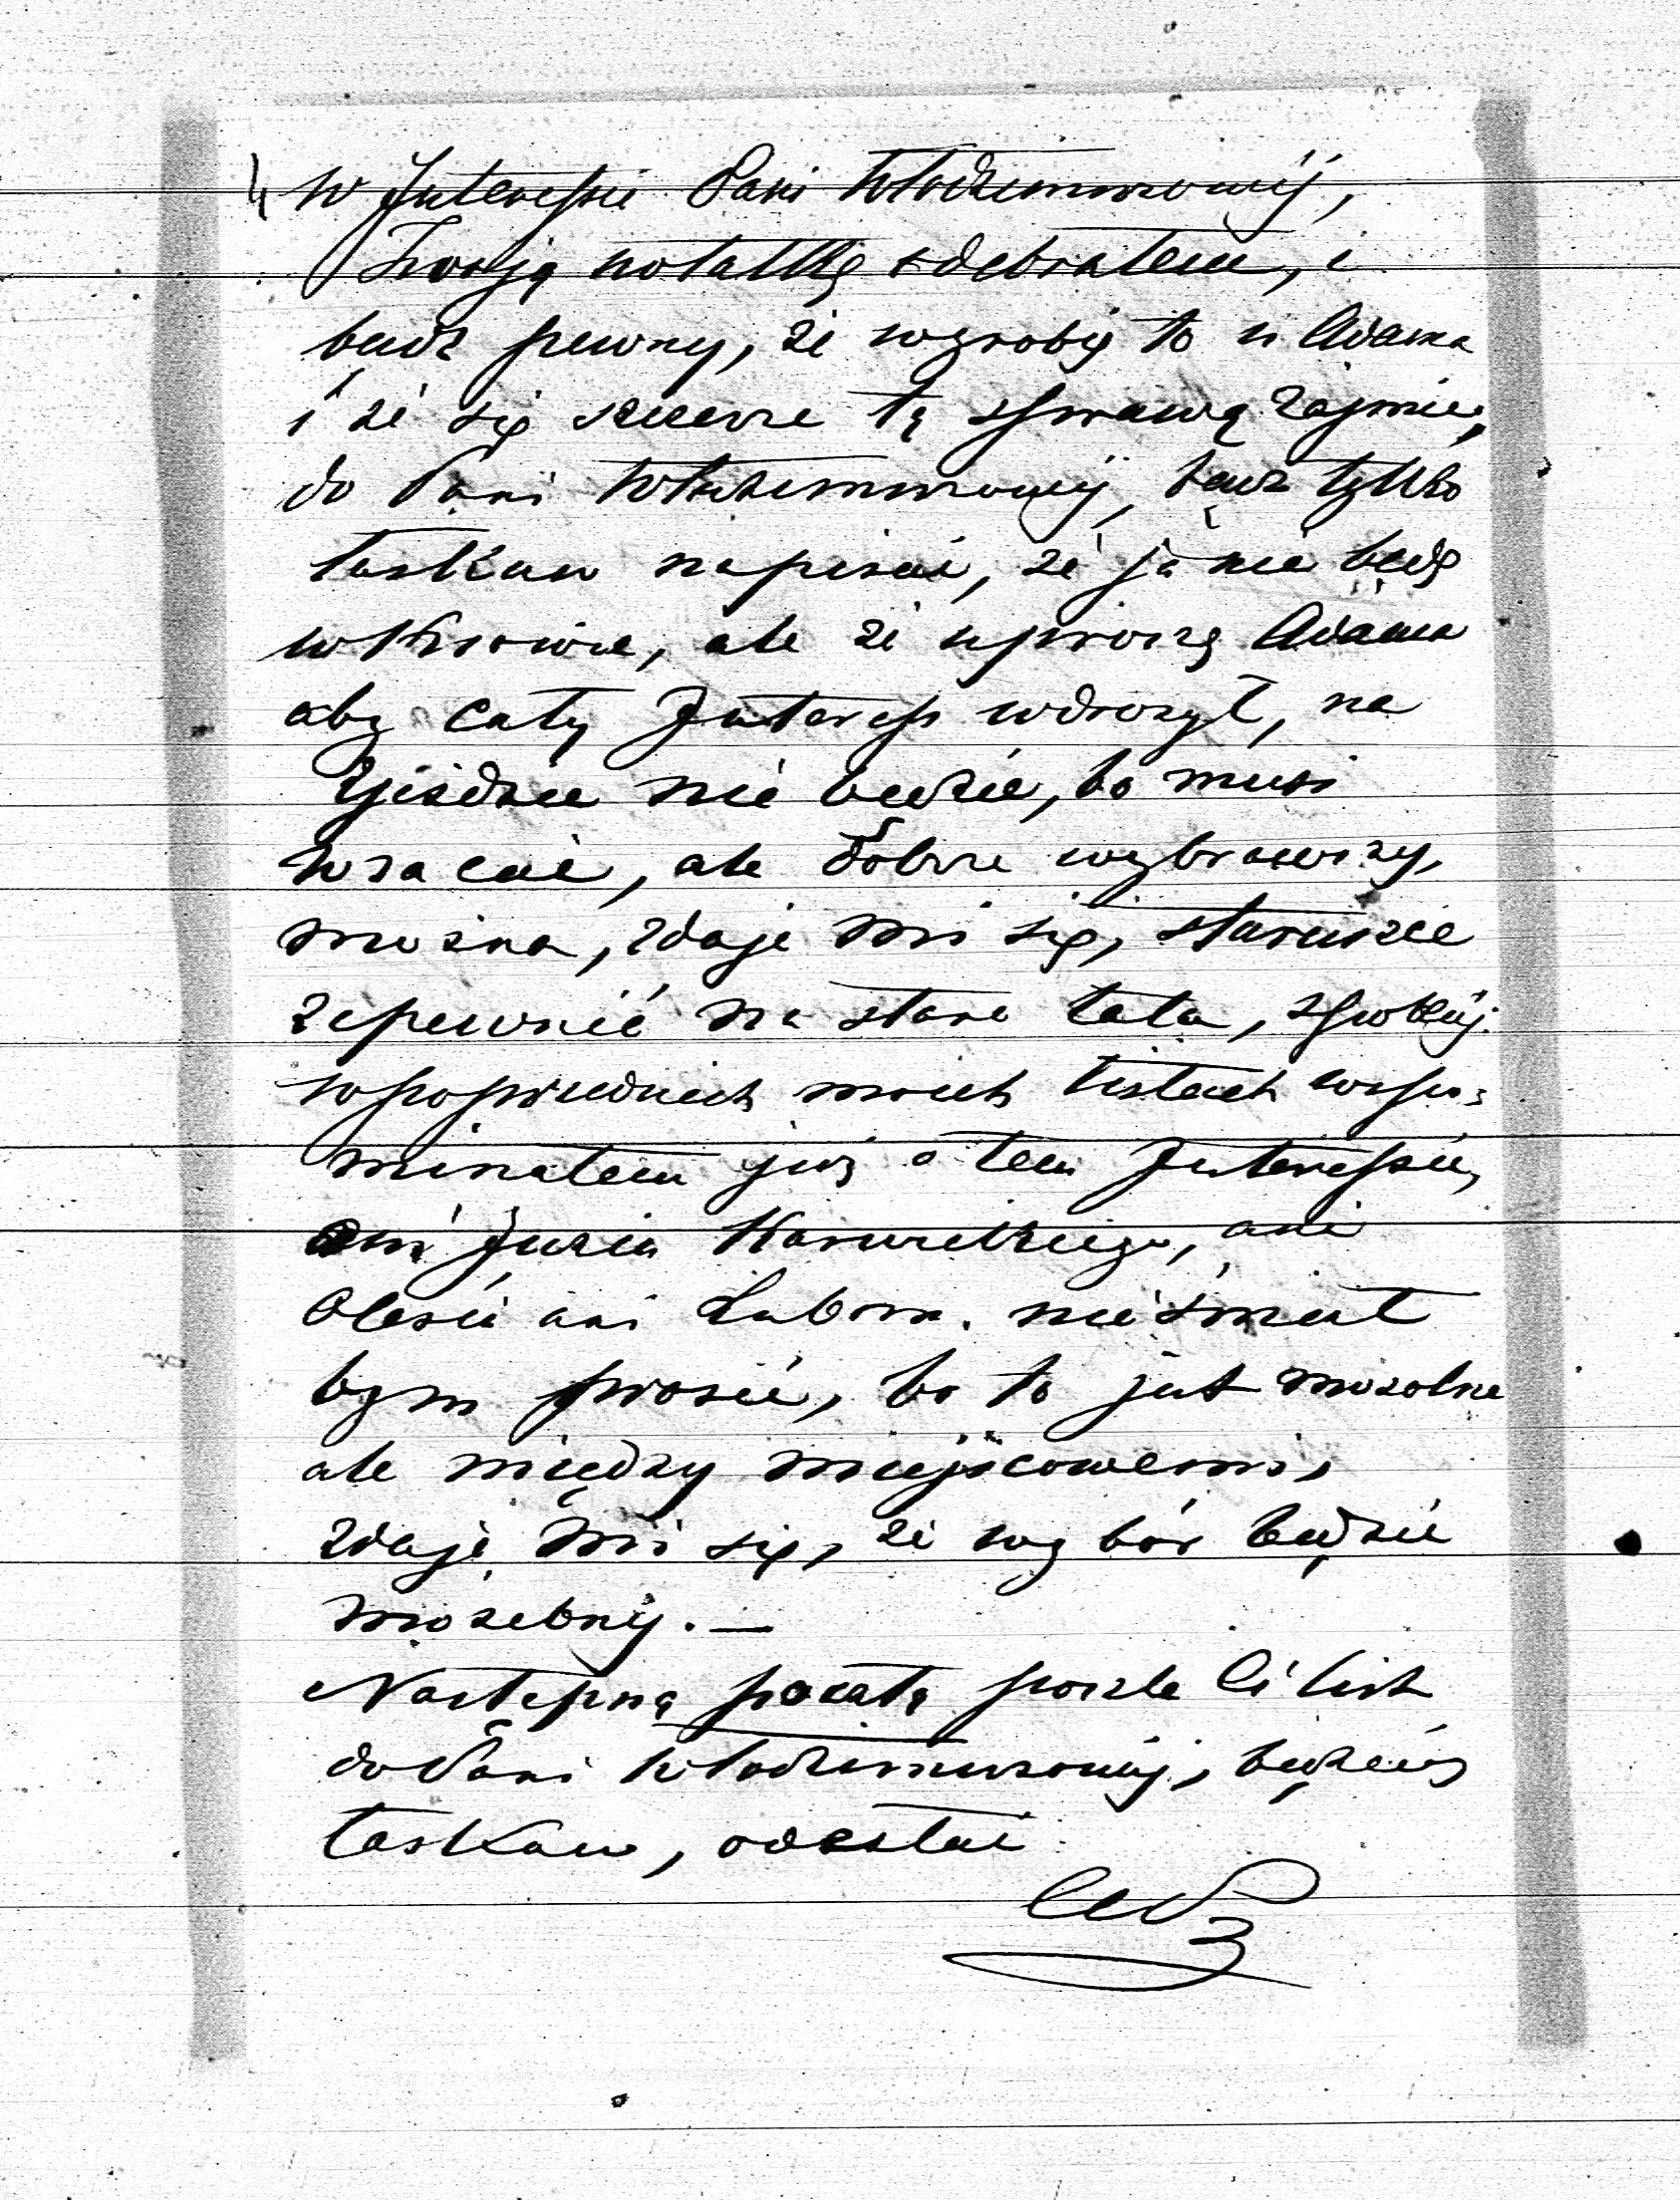 4 W Interessie Pani Włodzimirzowéj,
Twoję notatkę odebrałem, i
bądź pewny, że wyrobię to u Adama
i że się szczerze tą sprawą zajmie,
do Pani Włodzimirzowéj, bądź tylko
łaskaw napisać, że ja nie będę
w Krakowie, ale że uproszę Adama
aby cały Interess wdrożył, na
Zjeździe nie będzie, bo musi
wracać, ale dobrze wybrawszy,
można, zdaje mi się, staruszce
zapewnić na stare lata, spokój.
w poprzednich moich listach wspo=
minałem już o tem Interessie,
ani Juzia Karwickiego, ani
Olesia ani Lubom. nie śmiał
bym prosić, bo to jest mozolne
ale między miejscowemi,
zdaje mi się, że wybór będzie
możebny. —
Następną pocztą poszlę Ci list
do Pani Włodzimirzowéj, będziesz
łaskaw, odesłać